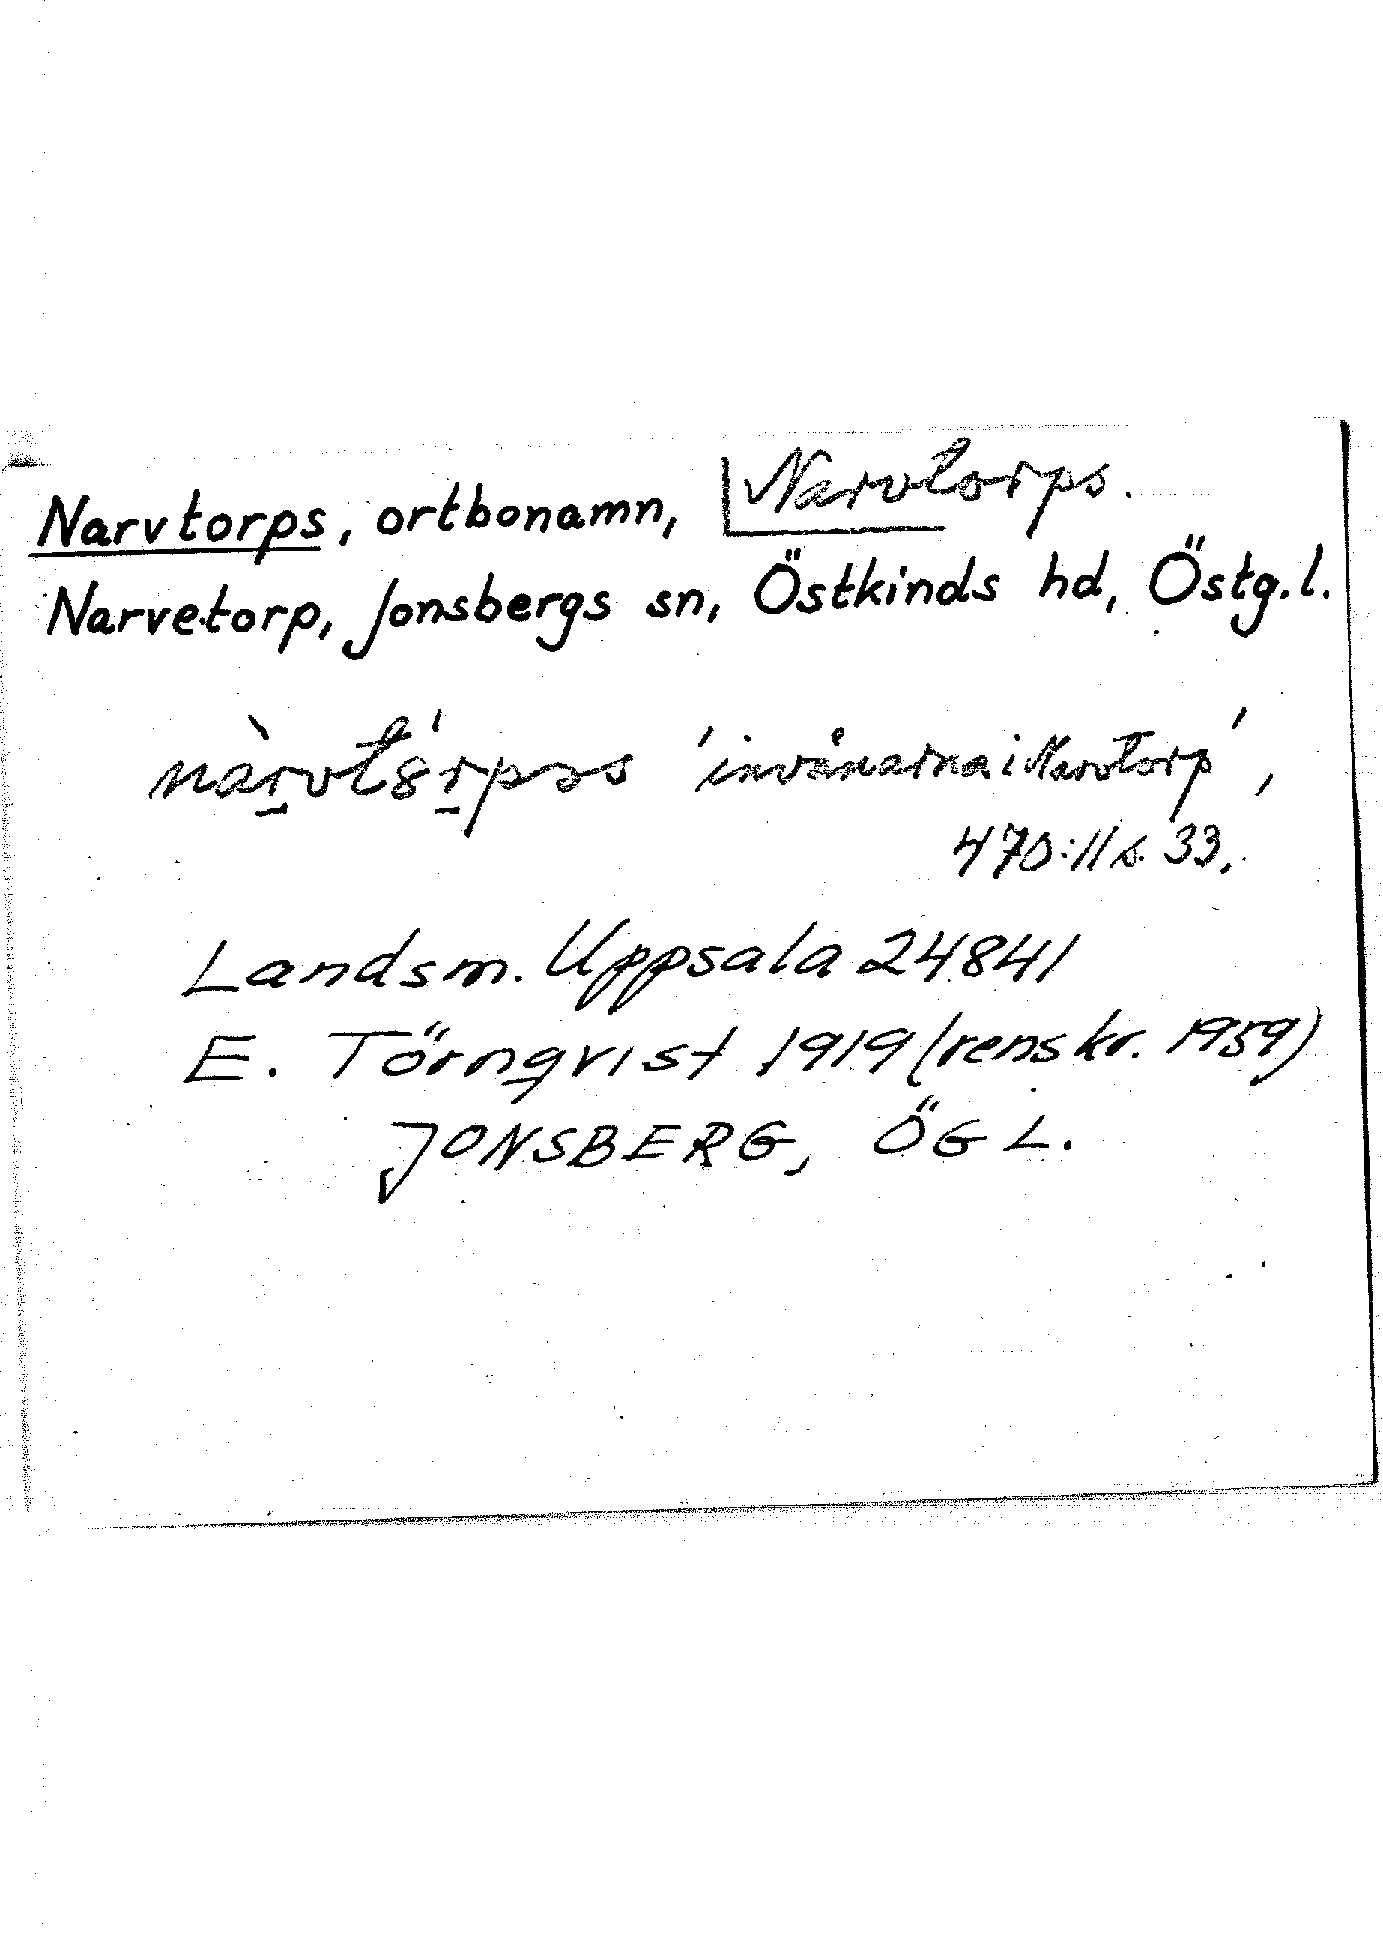 Narvtorps, ortbonamn, Narvtorps.
Narvetorp, Jonsbergs sn, Östkinds hd, Östg.l.
'invånarna i Narvtorp',
470:11 s. 33.
Landsm. Uppsala 24841
E. Törnqvist 1919 (renskr. 1959)
JONSBERG, ÖGL.